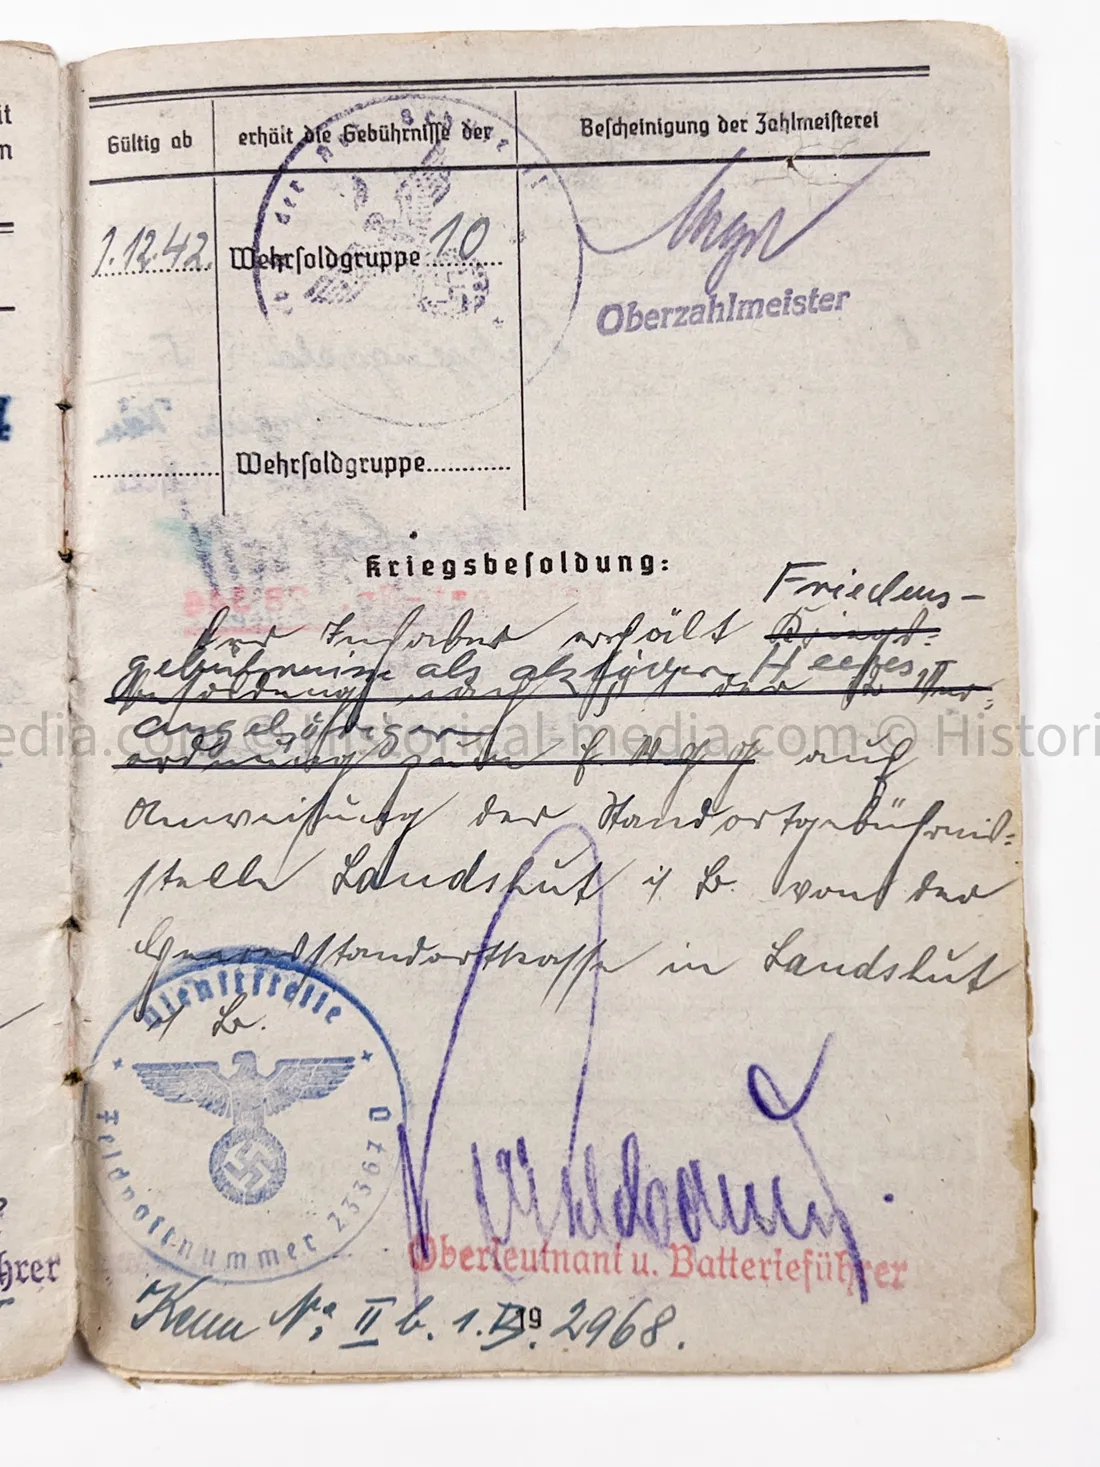 Gültig ab
erhält die Gebührnisse der
Bescheinigung der Zahlmeisterei
1.12.42.
Wehrsoldgruppe 10
Oberzahlmeister
Wehrsoldgruppe
Kriegsbesoldung:
Friedens-
Der Inhaber erhält Kriegs-
gebührnisse als Heeres-
besoldung nach der Ver-
angehöriger
ordnung zum auf
Anweisung der Standortgebührnis-
stelle Landshut i/ B. von der
Heeresstandortkasse in Landshut
i/ B.
Dienststelle
Feldpostnummer 23367 D
Oberleutnant u. Batterieführer
Kenn Nr: II b. 1. 2968.
19
hrer
edia.com © Historical-media.com © Histori